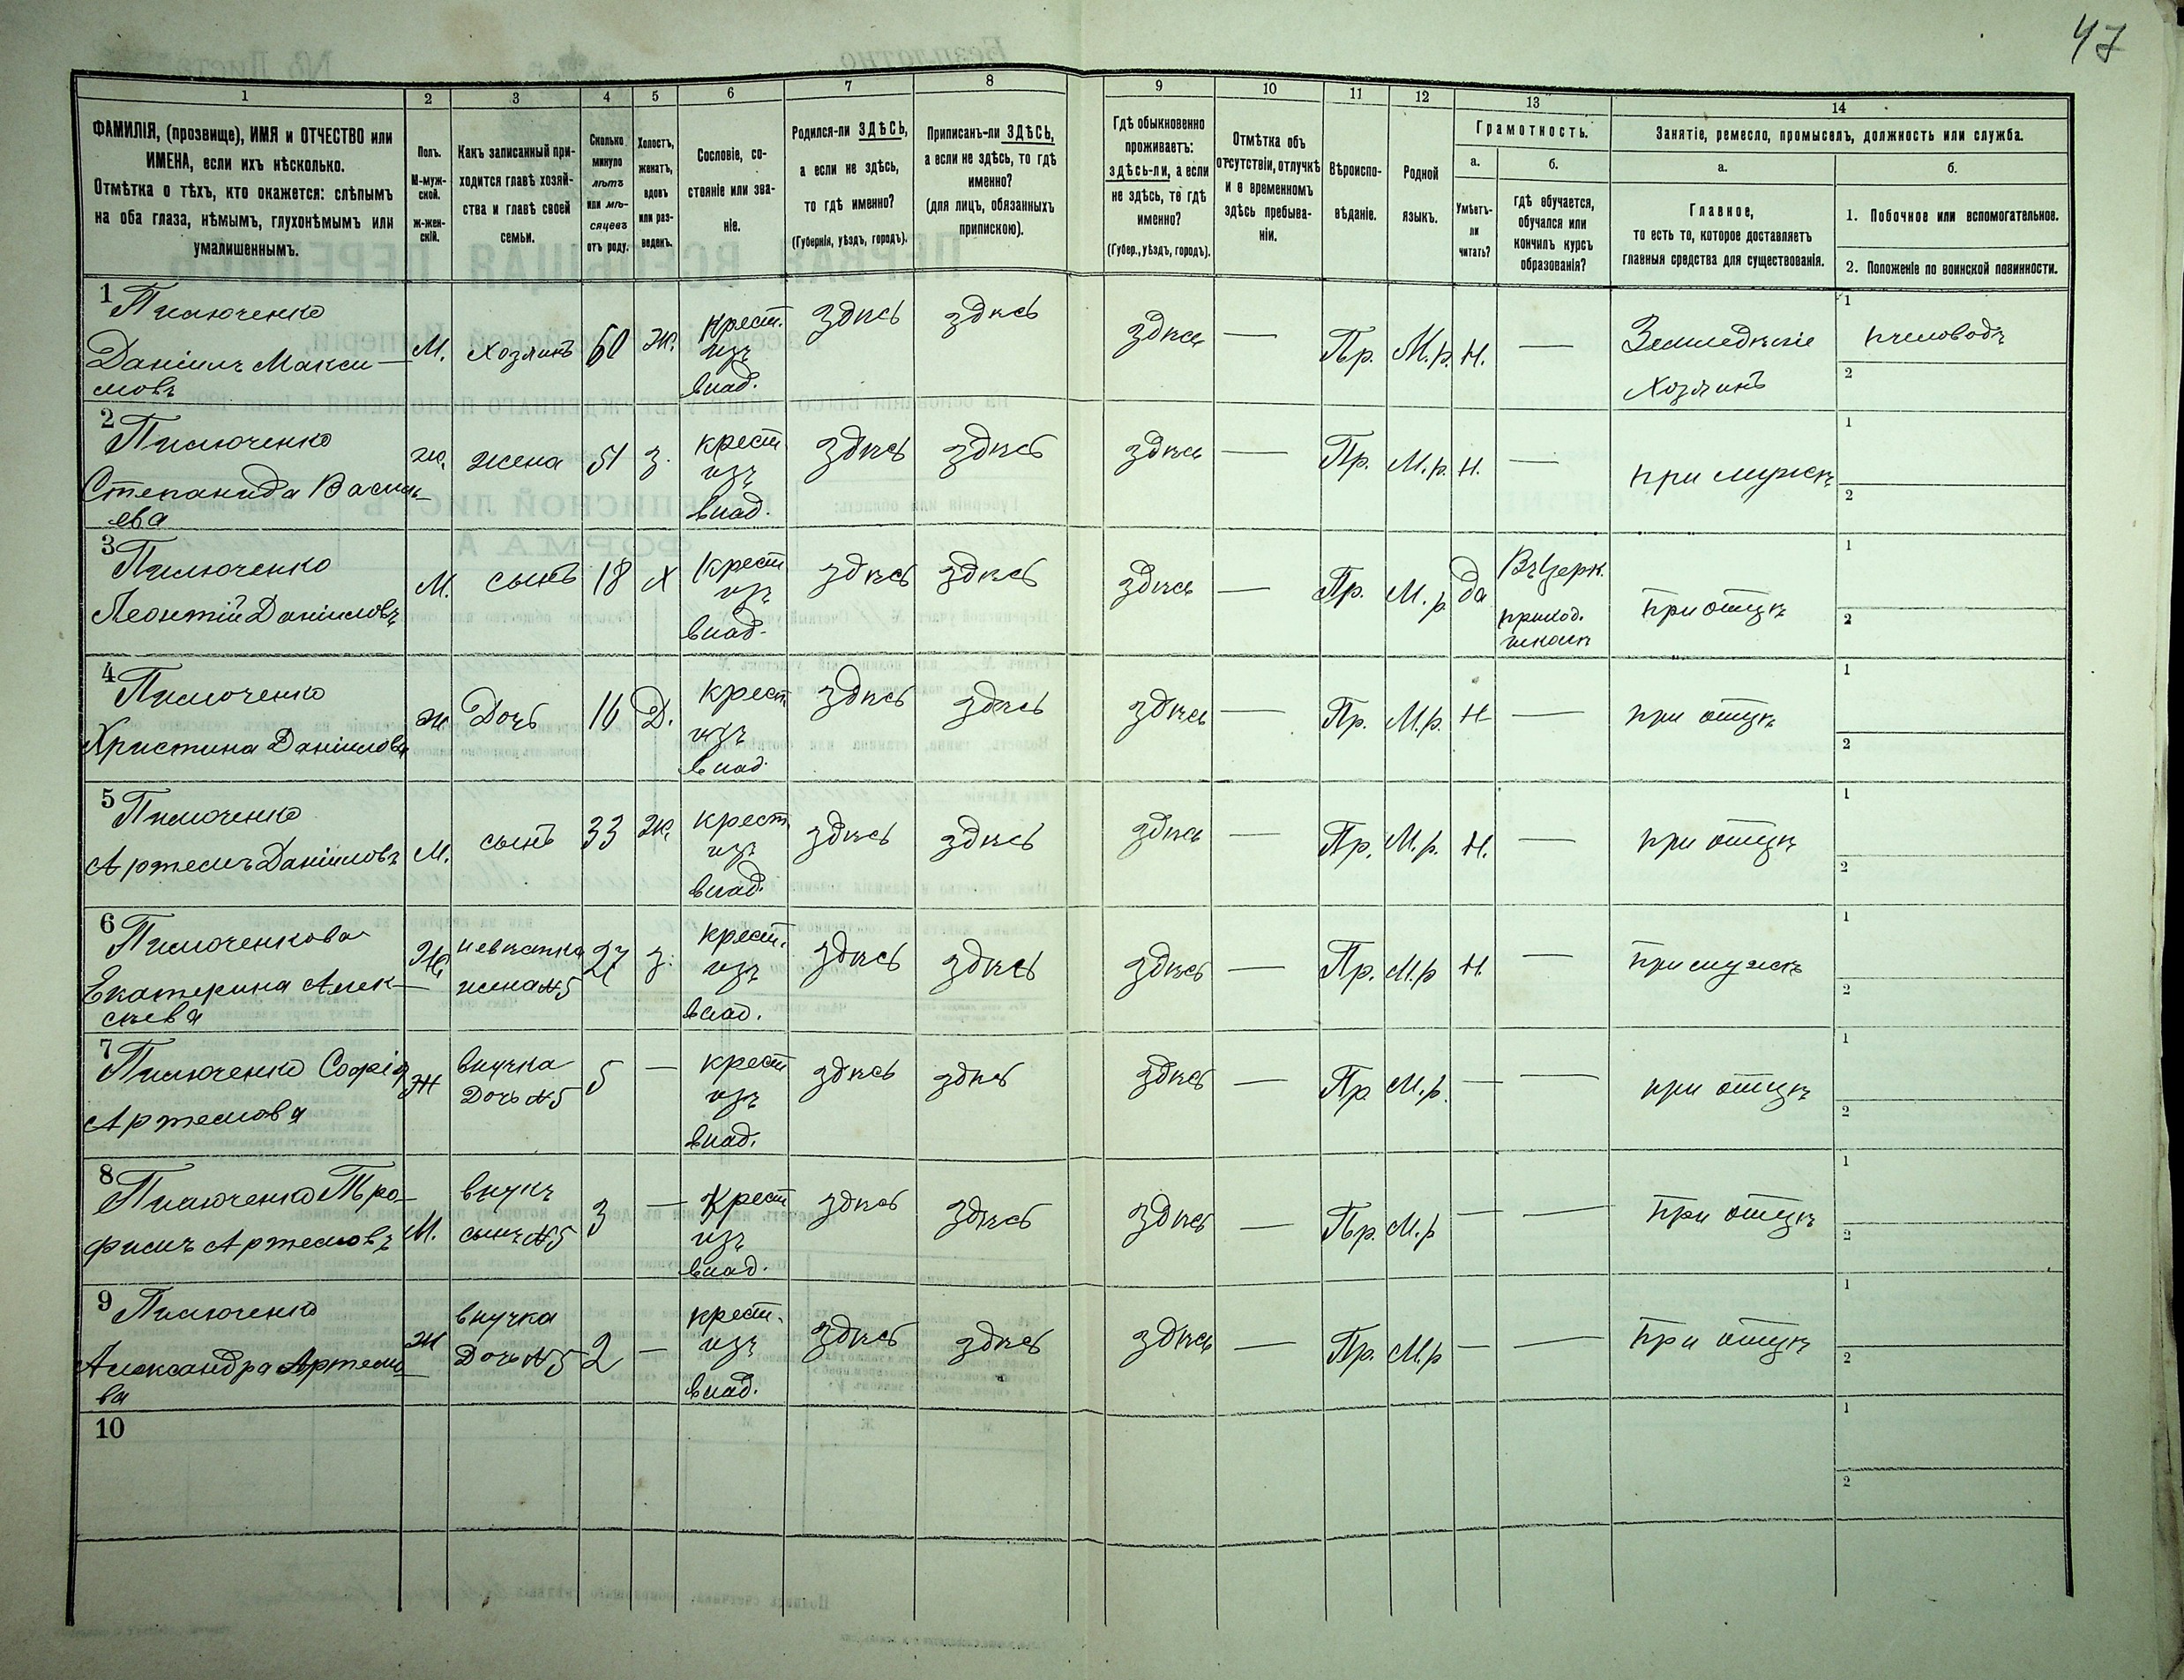 47
1 2 3 4 5 6 7 8 9 10 11 12 13 14
ФАМИЛІЯ, (прозвище), ИМЯ и ОТЧЕСТВО или
ИМЕНА, если ихъ нѣсколько.
Отмѣтка о тѣхъ, кто окажется: слѣпымъ
на оба глаза, нѣмымъ, глухонѣмымъ или
умалишеннымъ.
Полъ.
М-муж-
ской.
Ж-жен-
скій.
Какъ записанный при-
ходится главѣ хозяй-
ства и главѣ своей
семьи.
Сколько
минуло
лѣтъ
или мѣ-
сяцевъ
отъ роду.
Холостъ,
женатъ,
вдовъ
или раз-
веденъ.
Сословіе, со-
стояніе или зва-
ніе.
Родился-ли ЗДѢСЬ,
а если не здѣсь,
то гдѣ именно?
(Губернія, уѣздъ, городъ).
Приписанъ-ли ЗДѢСЬ,
а если не здѣсь, то гдѣ
именно?
(для лицъ, обязанныхъ
припискою).
Гдѣ обыкновенно
проживаетъ:
здѣсь-ли, а если
не здѣсь, то гдѣ
именно?
(Губер., уѣздъ, городъ).
Отмѣтка объ
отсутствіи, отлучкѣ
и о временномъ
здѣсь пребыва-
ніи.
Вѣроиспо-
вѣданіе.
Родной
языкъ.
Грамотность.
а.
Умѣетъ-
ли
читать?
б.
гдѣ обучается,
обучался или
кончилъ курсъ
образованія?
Занятіе, ремесло, промыселъ, должность или служба.
а.
Главное,
то есть то, которое доставляетъ
главныя средства для существованія.
б.
1. Побочное или вспомогательное.
2. Положеніе по воинской повинности.
1 Пилюченко
Даніилъ Макси-
мовъ
М. Хозяинъ 60 Ж. крест.
изъ
влад.
здѣсь здѣсь здѣсь — Пр. М.р. Н. —
Земледѣліе
Хозяинъ
1 пчеловодъ
2
2 Пилюченко
Степанида Василь-
ева
Ж. жена 51 З. крест
изъ
влад.
здѣсь здѣсь здѣсь — Пр. М.р. Н. — при мужѣ
1
2
3 Пилюченко
Леонтій Даніиловъ
М. сынъ 18 Х Крест
изъ
влад.
здѣсь здѣсь здѣсь — Пр. М.р да
Въ Церк.
приход.
школѣ
при отцѣ
1
2
4 Пилюченко
Христина Даніилова
Ж Дочь 16 Д. крест.
изъ
влад.
здѣсь здѣсь здѣсь — Пр. М.р. Н — при отцѣ
1
2
5 Пилюченко
Артемъ Даніиловъ
М. сынъ 33 Ж. крест.
изъ
влад.
здѣсь здѣсь здѣсь — Пр. М.р. Н. — при отцѣ
1
2
6 Пилюченкова
Екатерина Алек-
сѣева
Ж. невѣстка
жена №5
27 З. крест.
изъ
влад.
здѣсь здѣсь здѣсь — Пр. М.р Н — при мужѣ
1
2
7 Пилюченко Софія
Артемова
Ж внучка
Дочь №5
5 — крест
изъ
влад.
здѣсь здѣсь здѣсь — Пр М.р. — — при отцѣ
1
2
8 Пилюченко Тро-
фимъ Артемовъ
М. внукъ
сынъ №5
3 — Крест
изъ
влад.
здѣсь здѣсь здѣсь — Пр. М.р — — при отцѣ
1
2
9 Пилюченко
Александра Артемо-
ва
Ж внучка
Дочь №5
2 — крест.
изъ
влад.
здѣсь здѣсь здѣсь — Пр. М.р — — при отцѣ
1
2
10
1
2